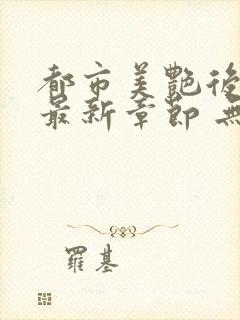 都市美艷後
最新章節 無
羅基